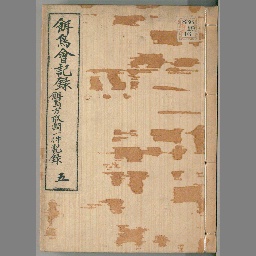 餌鳥會記録
餌鳥方取調一件記録
五